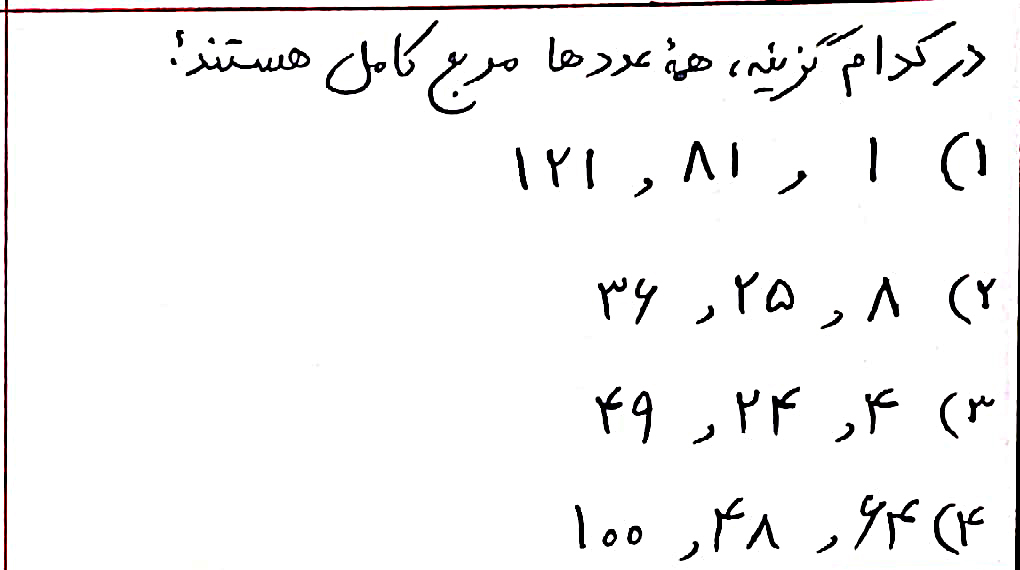 در کدام گزینه، همهٔ عددها مربع کامل هستند؟
۱) ۱ , ۸۱ , ۱۲۱
۲) ۸ , ۲۵ , ۳۶
۳) ۴ , ۲۴ , ۴۹
۴) ۶۴ , ۴۸ , ۱۰۰